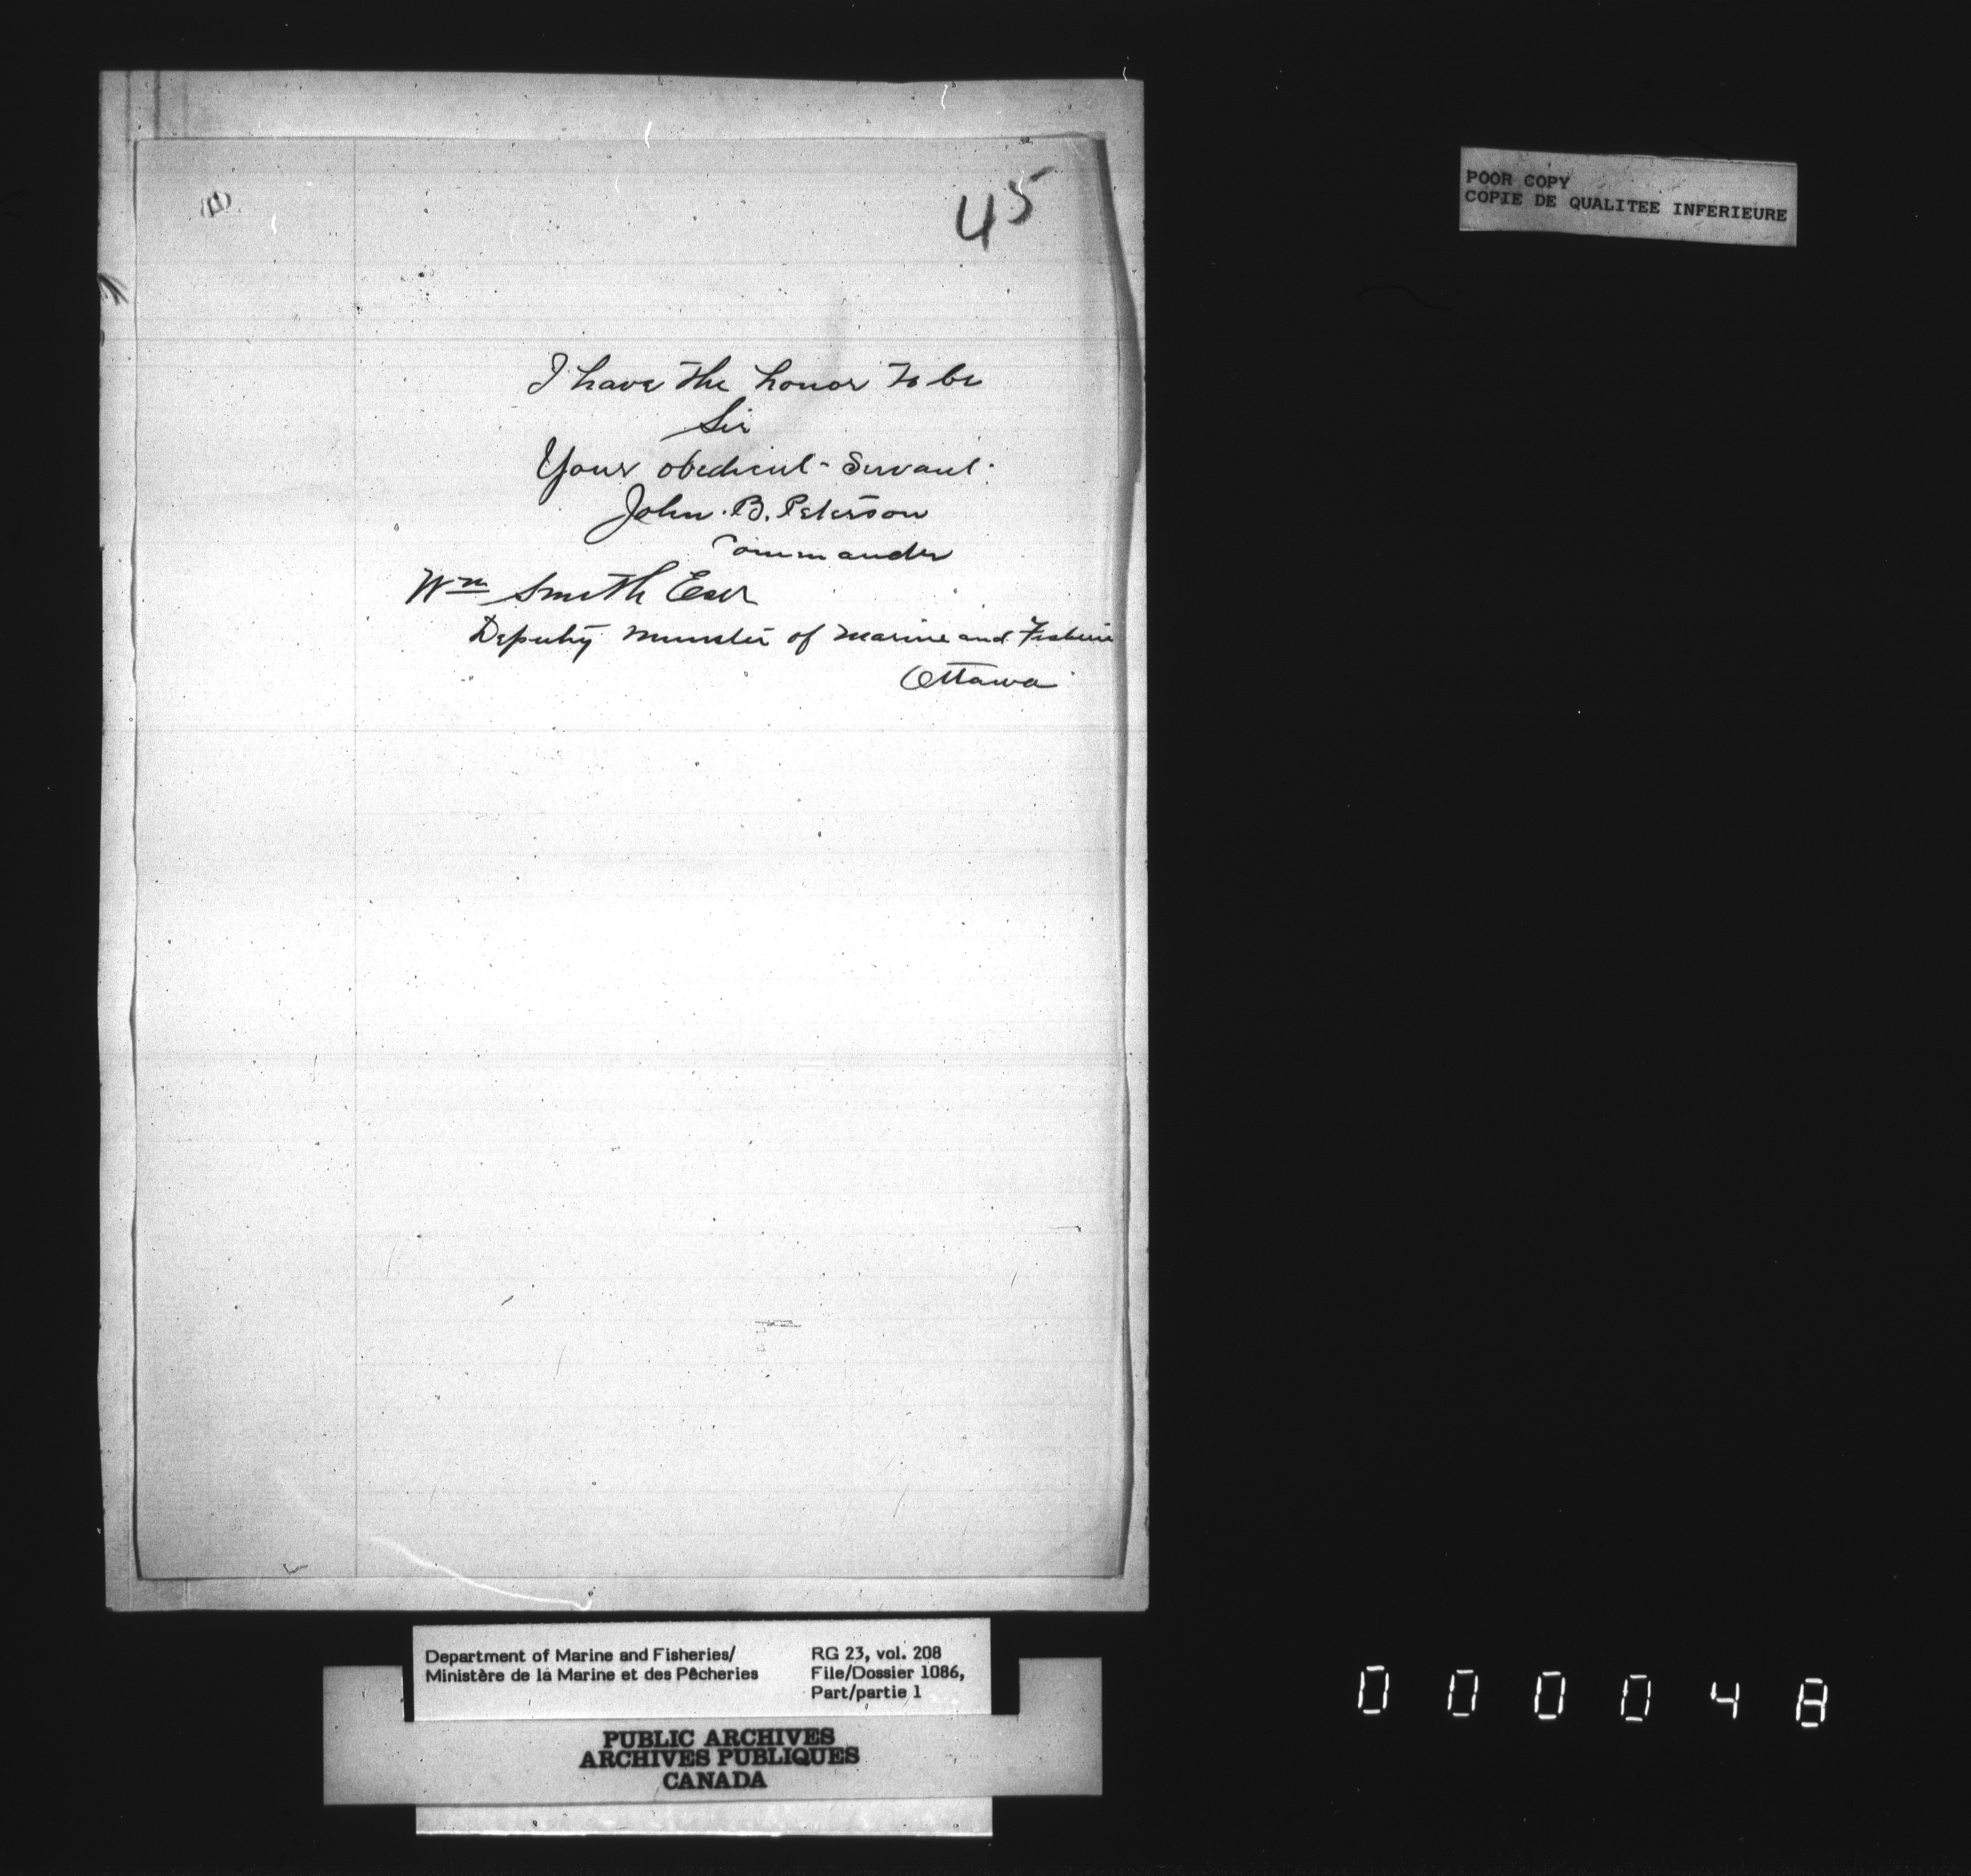 45
I have the honor to be
Sir
Your obedient Servant
John B. Peterson
Commander
Wm Smith Esqr
Deputy Minister of Marine and Fisheries
Ottawa
POOR COPY
COPIE DE QUALITEE INFERIEURE
Department of Marine and Fisheries/
Ministère de la Marine et des Pêcheries
RG 23, vol. 208
File/Dossier 1086,
Part/partie 1
PUBLIC ARCHIVES
ARCHIVES PUBLIQUES
CANADA
000048